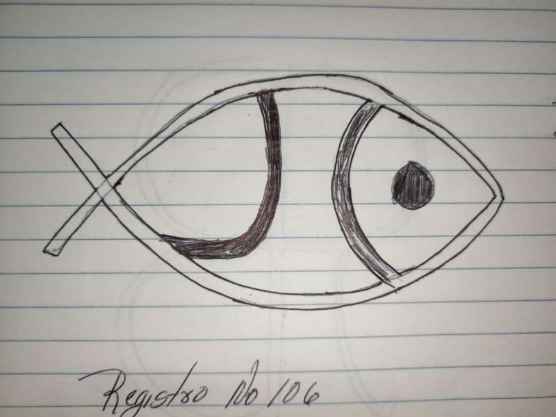 Registro No 106